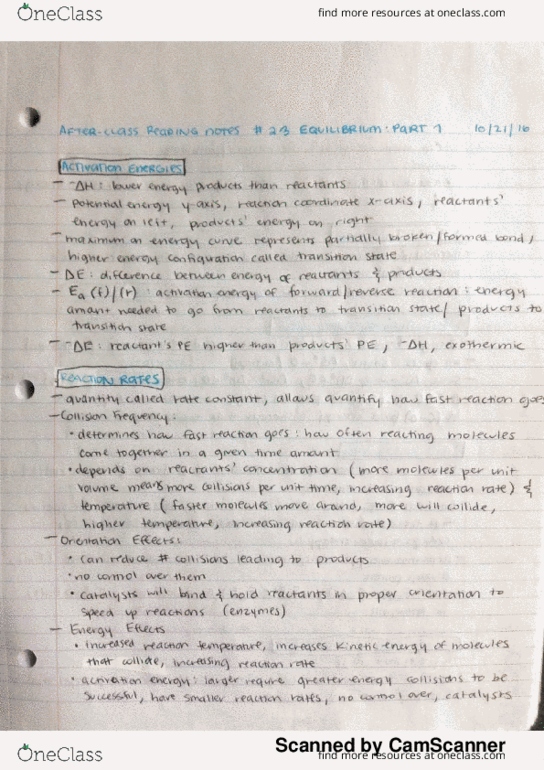 OneClass find more resources at oneclass.com
AFTER-CLASS READING NOTES # 23 EQUILIBRIUM: PART 1 10/21/16
ACTIVATION ENERGIES
- -ΔH: lower energy products than reactants
- Potential energy y-axis, reaction coordinate x-axis, reactants'
energy on left, products' energy on right
- maximum on energy curve represents partially broken/formed bond,
higher energy configuration called transition state
- ΔE: difference between energy of reactants & products
- Ea (f)/(r): activation energy of forward/reverse reaction: energy
amant needed to go from reactants to transition state/ products to
transition state
- -ΔE: reactant's PE higher than products' PE, -ΔH, exothermic
REACTION RATES
- quantity called rate constant, allows quantify how fast reaction goes
- Collison frequency:
• determines how fast reaction goes: how often reacting molecules
come together in a given time amant
• depends on reactants' concentration (more molecules per unit
volume means more collisions per unit time, increasing reaction rate) &
temperature (faster molecules move around, more will collide,
higher temperature, increasing reaction rate)
- Orientation Effects:
• can reduce # collisions leading to products
• no control over them
• catalysts will bind & hold reactants in proper orientation to
speed up reactions (enzymes)
- Energy Effects
• increased reaction temperature, increases kinetic energy of molecules
that collide, increasing reaction rate
• activation energy: larger require greater energy collisions to be
successful, have smaller reaction rates, no control over, catalysts
Scanned by CamScanner
OneClass find more resources at oneclass.com